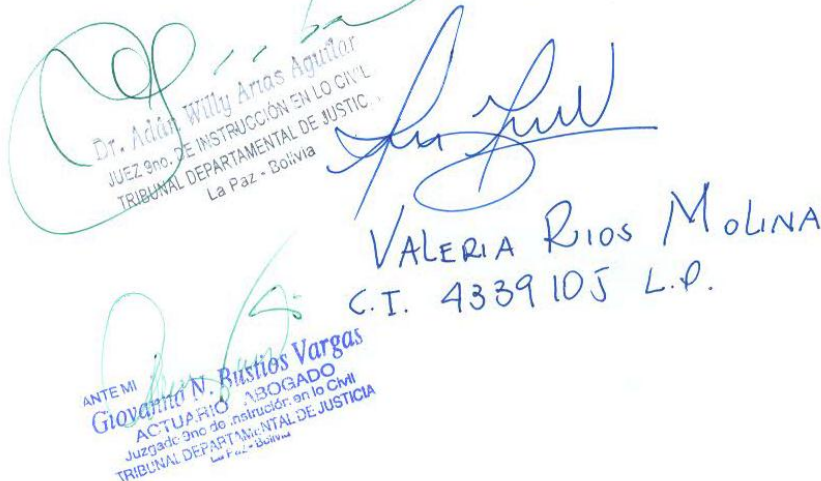 Dr. Adán Willy Arias Aguilar
JUEZ 9no. DE INSTRUCCIÓN EN LO CIVIL
TRIBUNAL DEPARTAMENTAL DE JUSTIC
La Paz - Bolivia
VALERIA RIOS MOLINA
C.I. 4339105 L.P.
ANTE MI
Giovanno N. Bustios Vargas
ACTUARIO ABOGADO
Juzgado 9no de Instrución en lo Civil
TRIBUNAL DEPARTAMENTAL DE JUSTICIA
La Paz - Bolivia